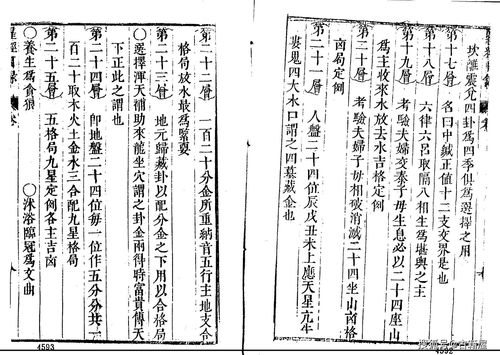 坎離震兌四卦爲四季俱爲選擇之用
第十七層 名曰中縫正值十二支交界是也
第十八層 六律六呂取隔八相生爲堪輿之主
第十九層 考驗夫婦交泰子母生息必以二十四座山
爲主收來水放去水吉格定例
第二十層 考驗夫婦子母相破消滅二十四坐山凶格
凶局定例
第二十一層 人盤二十四位辰戌丑未上應天星亢牛
婁鬼四大水口謂之四墓藏金也
第二十二層 一百二十分金所重納音五行主地支令
格局放水最爲緊要
第二十三層 地元歸藏卦以配分金之下用以合格局
○選擇渾天補助來龍坐穴謂之卦金兩得時富貴傳天
下正此之謂也
第二十四層 即地盤二十四位每一位作五分分共一
百二十取木火土金水三合配九星格局
第二十五層 五格局九星定例各主吉凶
○養生爲貪狼 ○沐浴臨冠爲文曲
4593
4592